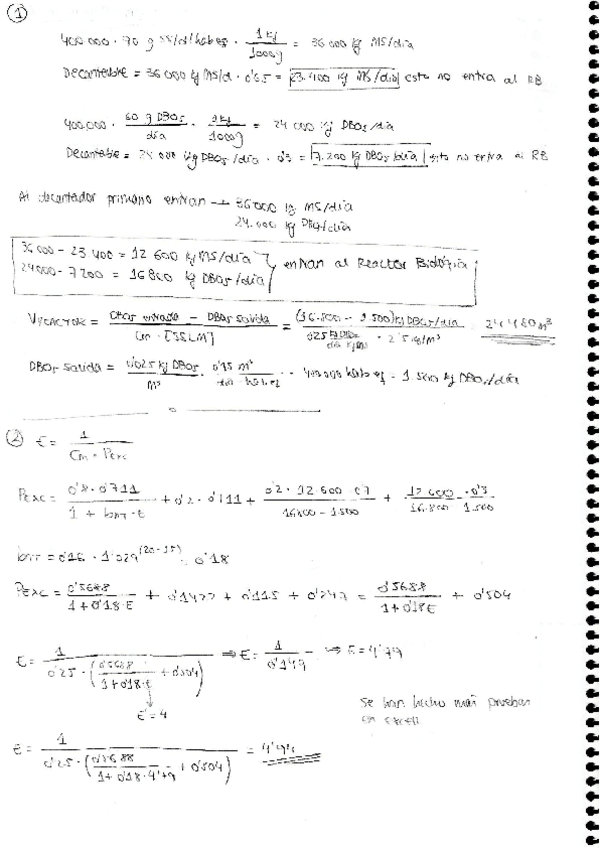 ①
400.000 · 90 g SS/d/hab eq · 1 kg / 1000 g = 36000 kg MS/día
Decantable = 36000 kg MS/d · 0'65 = 23.400 kg MS/día esto no entra al RB
400.000 · 60 g DBO5 / día · 1 kg / 1000 g = 24 000 kg DBO5/día
Decantable = 24 000 kg DBO5/día · 0'3 = 7.200 kg DBO5/día esto no entra al RB
Al decantador primario entran → 36000 kg MS/día
24.000 kg DBO5/día
36000 - 23400 = 12 600 kg MS/día
24000 - 7200 = 16800 kg DBO5/día } entran al Reactor Biológico
V reactor = DBO5 entrada - DBO5 salida / Cm · [SSLM] = (16.800 - 1 500) kg DBO5/día / 0'25 kg DBO5 / día kg MS · 2'5 kg/m³ = 24 480 m³
DBO5 salida = 0'025 kg DBO5 / m³ · 0'15 m³ / día · hab eq · 400.000 hab eq = 1 500 kg DBO5/día
②
E = 1 / Cm · Pexc
Pexc = 0'8 · 0'711 / 1 + bht · E + 0'2 · 0'711 + 0'2 · 12.600 · 0'7 / 16800 - 1.500 + 12 600 · 0'3 / 16.800 - 1.500
bht = 0'16 · 1'029^(20-15) = 0'18
Pexc = 0'5688 / 1 + 0'18 · E + 0'1422 + 0'115 + 0'247 = 0'5688 / 1 + 0'18 E + 0'504
E = 1 / 0'25 · (0'5688 / 1 + 0'18 · E + 0'504) ⇒ E = 1 / 0'147 ⇒ E = 4'79
E = 4
Se han hecho más pruebas
en excell
E = 1 / 0'25 · (0'5688 / 1 + 0'18 · 4'79 + 0'504) = 4'94